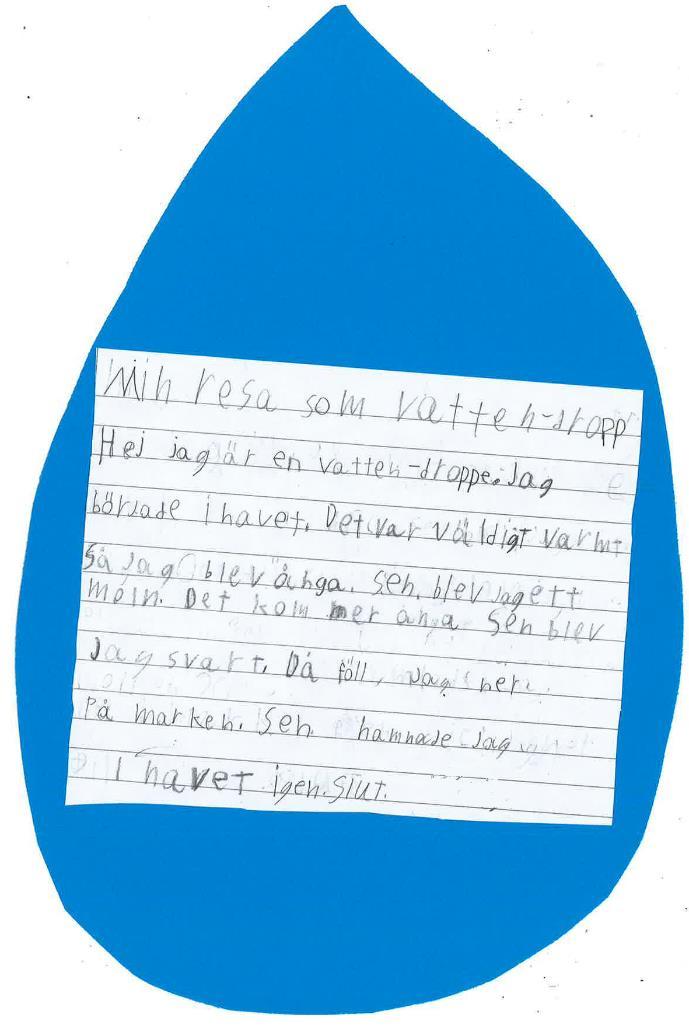 Min resa som vatten-dropp
e
Hej jag är en vatten-droppe. Jag
började i havet. Det var väldigt varmt
så jag blev ånga. Sen blev jag ett
moln. Det kom mer ånga sen blev
jag svart. Då föll jag ner
på marken. Sen hamnade jag
i havet igen. Slut.